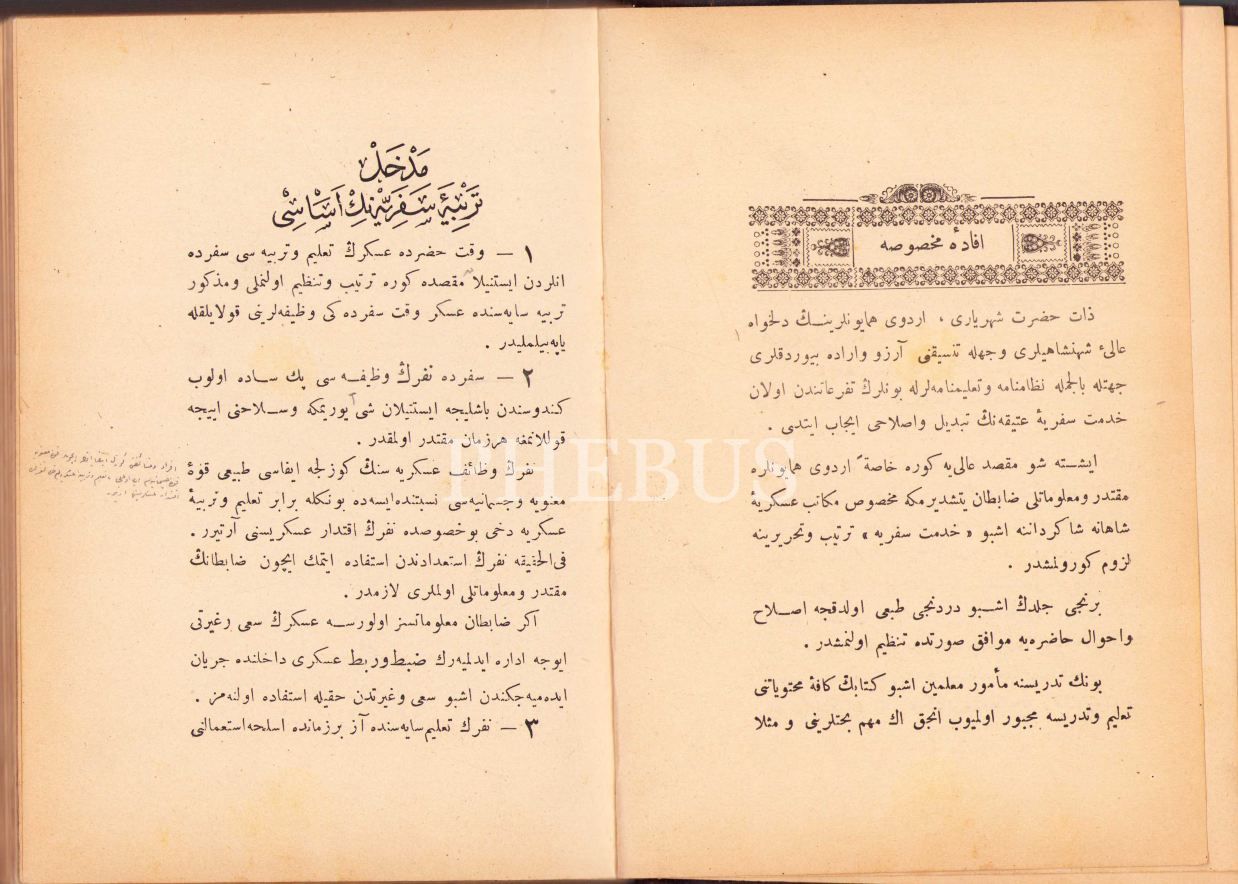 افادۀ مخصوصه
ذات حضرت شهریاری ، اردوی همایونلرینـــك دلخواه
عالیٔ شهنشاهیلری وجهله تنسیقنی آرزو واراده بیوردقلری
جهتله بالجمله نظامنامه وتعلیمنامه‌لرله بونلرك تفرعاتندن اولان
خدمت سفریۀ عتیقه‌نڭ تبدیل واصلاحی ایجاب ایتدی .
ایشـــته شو مقصد عالی‌یه کوره خاصةً اردوی همایونلره
مقتدر ومعلوماتلی ضابطان یتشدیرمکه مخصوص مکاتب عسکریۀ
شاهانه شاکرداننه اشبو « خدمت سفریه » ترتیب وتحریرینه
لزوم کورولمشدر .
برنجی جلدك اشـــبو دردنجی طبعی اولدقجه اصـــلاح
واحوال حاضره‌یه موافق صورتده تنظیم اولنمشدر .
بونك تدریسنه مأمور معلمین اشبو کتابك کافۀ محتویاتنی
تعلیم وتدریسه مجبور اولمیوب انجق اك مهم بحثلرینی و مثلا
مَدْخَلْ
تَرْبِیَۀ سَفَرِیَّه‌نِكْ اَسَاسْیْ
١ — وقت حضرده عسکرڭ تعلیم وتربیه سی سفرده
انلردن ایستنیلان مقصده کوره ترتیب وتنظیم اولنملی ومذکور
تربیه سایه‌سنده عسکر وقت سفرده کی وظیفه‌لرینی قولایلقله
یاپه‌بیلملیدر .
٢ — سفرده نفرڭ وظیفـــه سی پك ســـاده اولوب
کندوسندن باشلیجه ایستنیلان شی یوریمکه وســـلاحنی اییجه
قوللانمغه هرزمان مقتدر اولمقدر .
نفرڭ وظائف عسکریه سنك کوزلجه ایفاسی طبیعی قوۀ
معنویه وجسمانیه‌سی نسبتنده‌ایسه‌ده بونکله برابر تعلیم وتربیۀ
عسکریه دخی بوخصوصده نفرڭ اقتدار عسکریسنی آرتیرر .
فی‌الحقیقه نفرڭ استعدادندن استفاده ایتمك ایچون ضابطانڭ
مقتدر ومعلوماتلی اولملری لازمدر .
اکر ضابطان معلوماتسز اولورســـه عسکرڭ سعی وغیرتی
ایوجه اداره ایدلمیه‌رك ضبط‌وربط عسکری داخلنده جریان
ایده‌میه‌جکندن اشبو سعی وغیرتدن حقیله استفاده اولنه‌مز .
٣ — نفرك تعلیم‌سایه‌سنده آز برزمانده اسلحه‌استعمالنی
PHEBUS